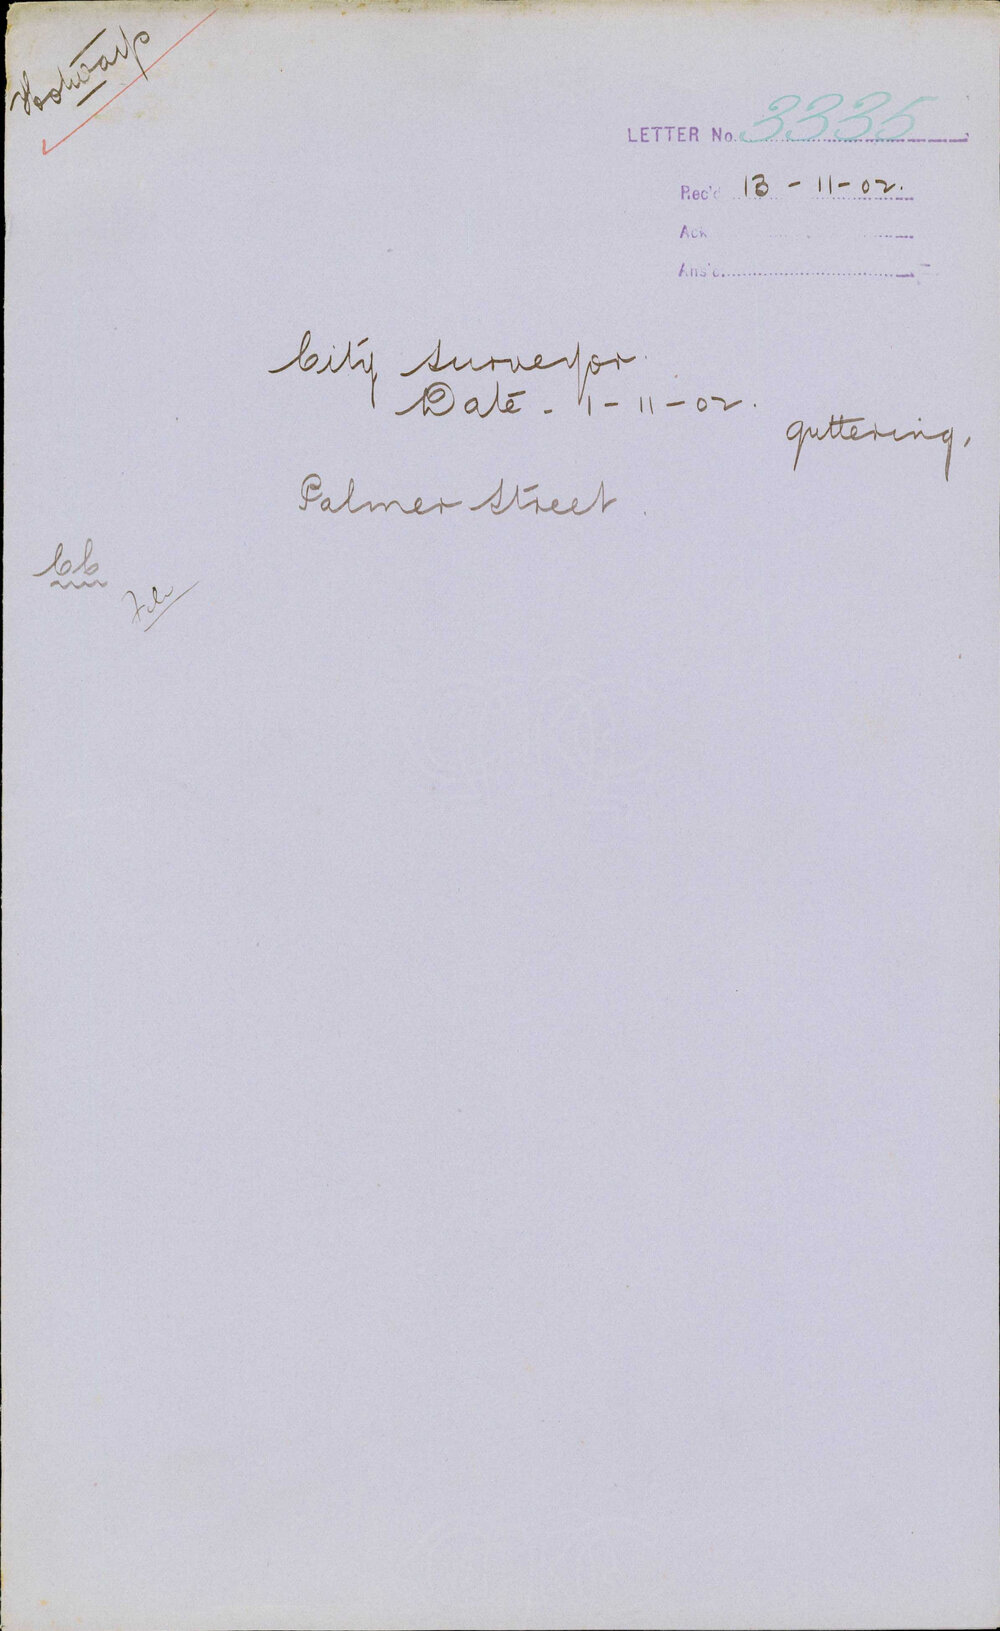 Footways
LETTER No. 3335
Rec'd 13 - 11 - 02.
Ack
Ans'd.
City Surveyor.
Date - 1 - 11 - 02.
guttering,
Palmer Street.
File